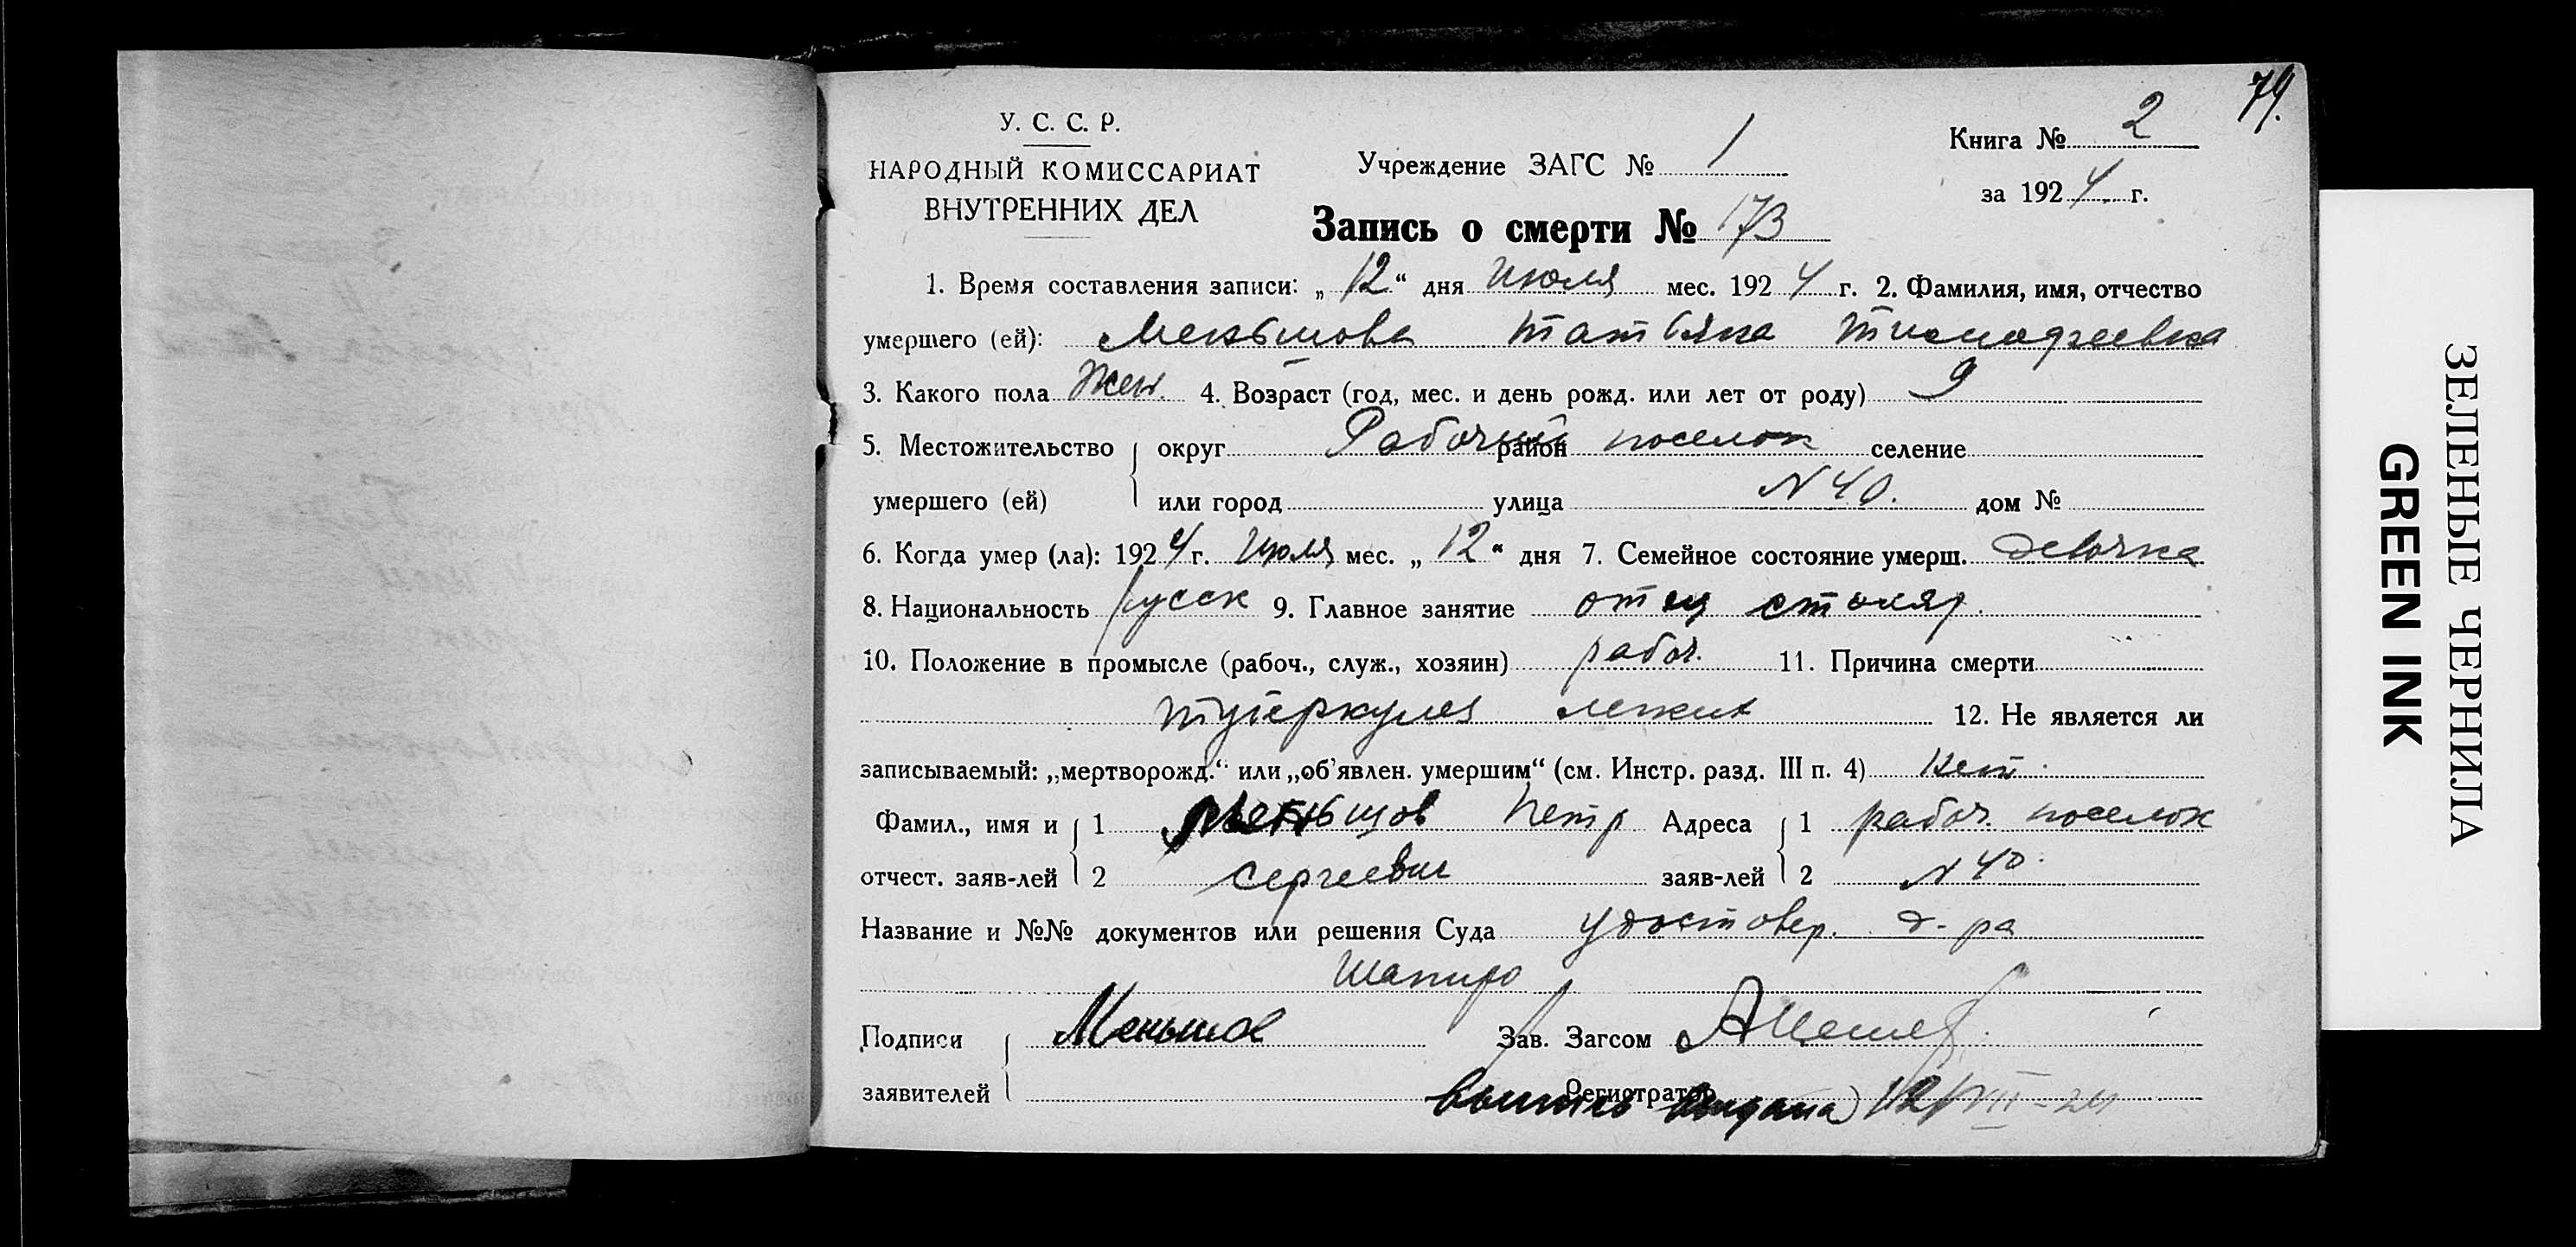 79.
У. С. С. Р.
НАРОДНЫЙ КОМИССАРИАТ
ВНУТРЕННИХ ДЕЛ
Учреждение ЗАГС № 1
Книга № 2
за 1924 г.
Запись о смерти № 173
1. Время составления записи: „12“ дня июля мес. 1924 г. 2. Фамилия, имя, отчество
умершего (ей): Меньшова Татьяна Тимофеевна
3. Какого пола Жен. 4. Возраст (год, мес. и день рожд. или лет от роду) 9
5. Местожительство округ Рабочий район поселок селение
умершего (ей) или город улица N 40. дом №
6. Когда умер (ла): 1924 г. июля мес. „12“ дня 7. Семейное состояние умерш. девочка
8. Национальность русск 9. Главное занятие отец столяр.
10. Положение в промысле (рабоч., служ., хозяин) рабоч. 11. Причина смерти
туберкулез легких 12. Не является ли
записываемый: „мертворожд.“ или „об’явлен. умершим“ (см. Инстр. разд. III п. 4) нет.
Фамил., имя и 1 Меньшов Петр Адреса 1 рабоч. поселок
отчест. заяв-лей 2 Сергеевич заяв-лей 2 N 40.
Название и №№ документов или решения Суда удостовер. д-ра
Шапиро
Подписи Меньшов Зав. Загсом
заявителей Регистратор
выпись выдана 12/VII-24
ЗЕЛЕНЫЕ ЧЕРНИЛА
GREEN INK